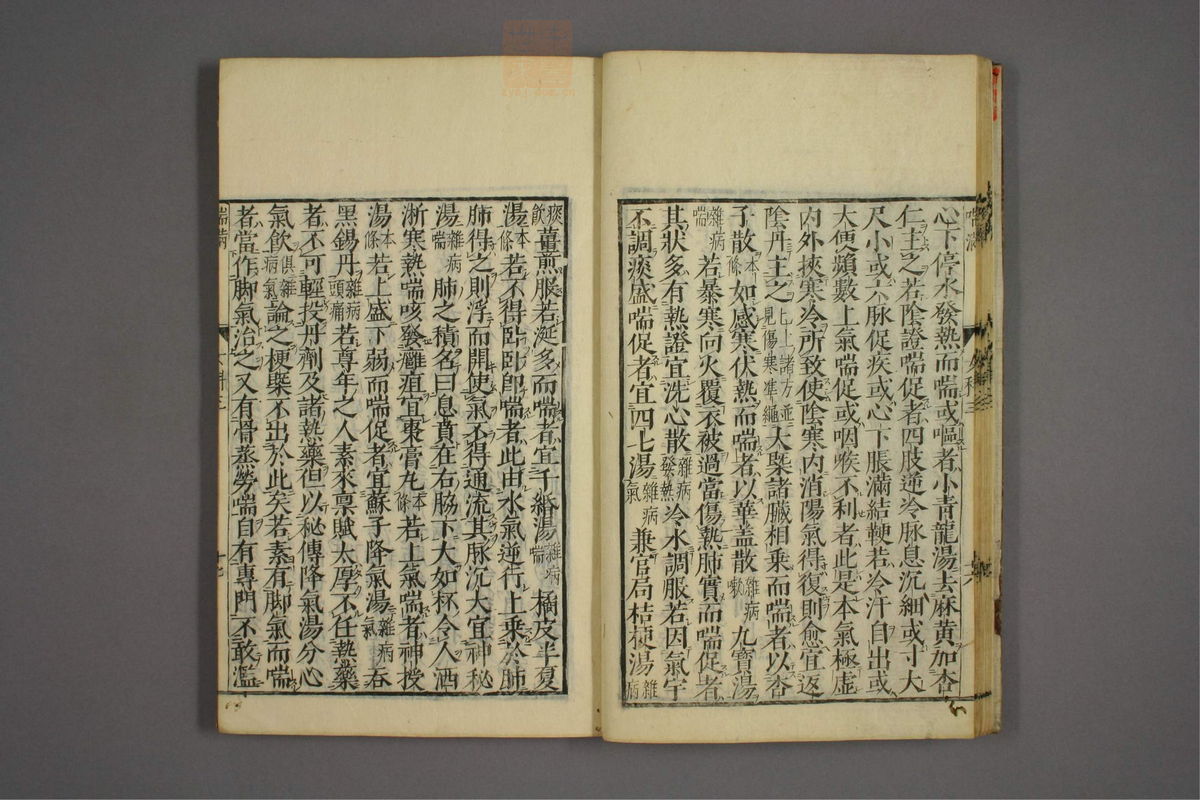 心下停水發熱而喘或嘔者小青龍湯去麻黃加杏
仁主之若陰證喘促者四肢逆冷脉息沉細或寸大
尺小或六脉促疾或心下脹滿結鞕若冷汗自出或
大便頻數上氣喘促或咽喉不利者此是本氣極虛
內外挾寒冷所致使陰寒內消陽氣得復則愈宜返
陰丹主之已上諸方並見傷寒準繩大槩諸臟相乗而喘者以杏
子散本條如感寒伏熱而喘者以華盖散雜病嗽九寶湯
雜病喘若暴寒向火覆衣被過當傷熱肺實而喘促者
其狀多有熱證宜洗心散雜病發熱冷水調服若因氣宇
不調痰盛喘促者宜四七湯雜病氣兼官局桔梗湯雜病
痰飲薑煎服若涎多而喘者宜千緡湯雜病喘橘皮半夏
湯本條若不得臥臥即喘者此由水氣逆行上乗於肺
肺得之則浮而開使氣不得通流其脉沉大宜神秘
湯雜病喘肺之積名曰息賁在右脇下大如杯令人洒
淅寒熱喘咳發癰疽宜棗膏丸本條若上氣喘者神授
湯本條若上盛下弱而喘促者宜蘇子降氣湯雜病氣養
黑錫丹雜病頭痛若尊年之人素來禀賦太厚不任熱藥
者不可輕投丹劑及諸熱藥但以秘傳降氣湯分心
氣飲俱雜病氣論之梗槩不出於此矣若素有脚氣而喘
者當作脚氣治之又有骨蒸勞喘自有專門不敢濫
喘病